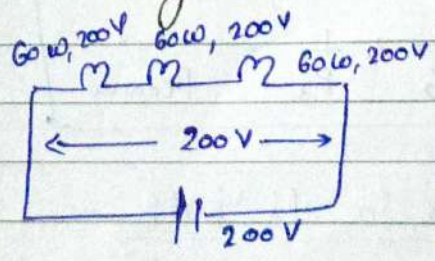 60w, 200V 60w, 200V 60w, 200V
200V
200V